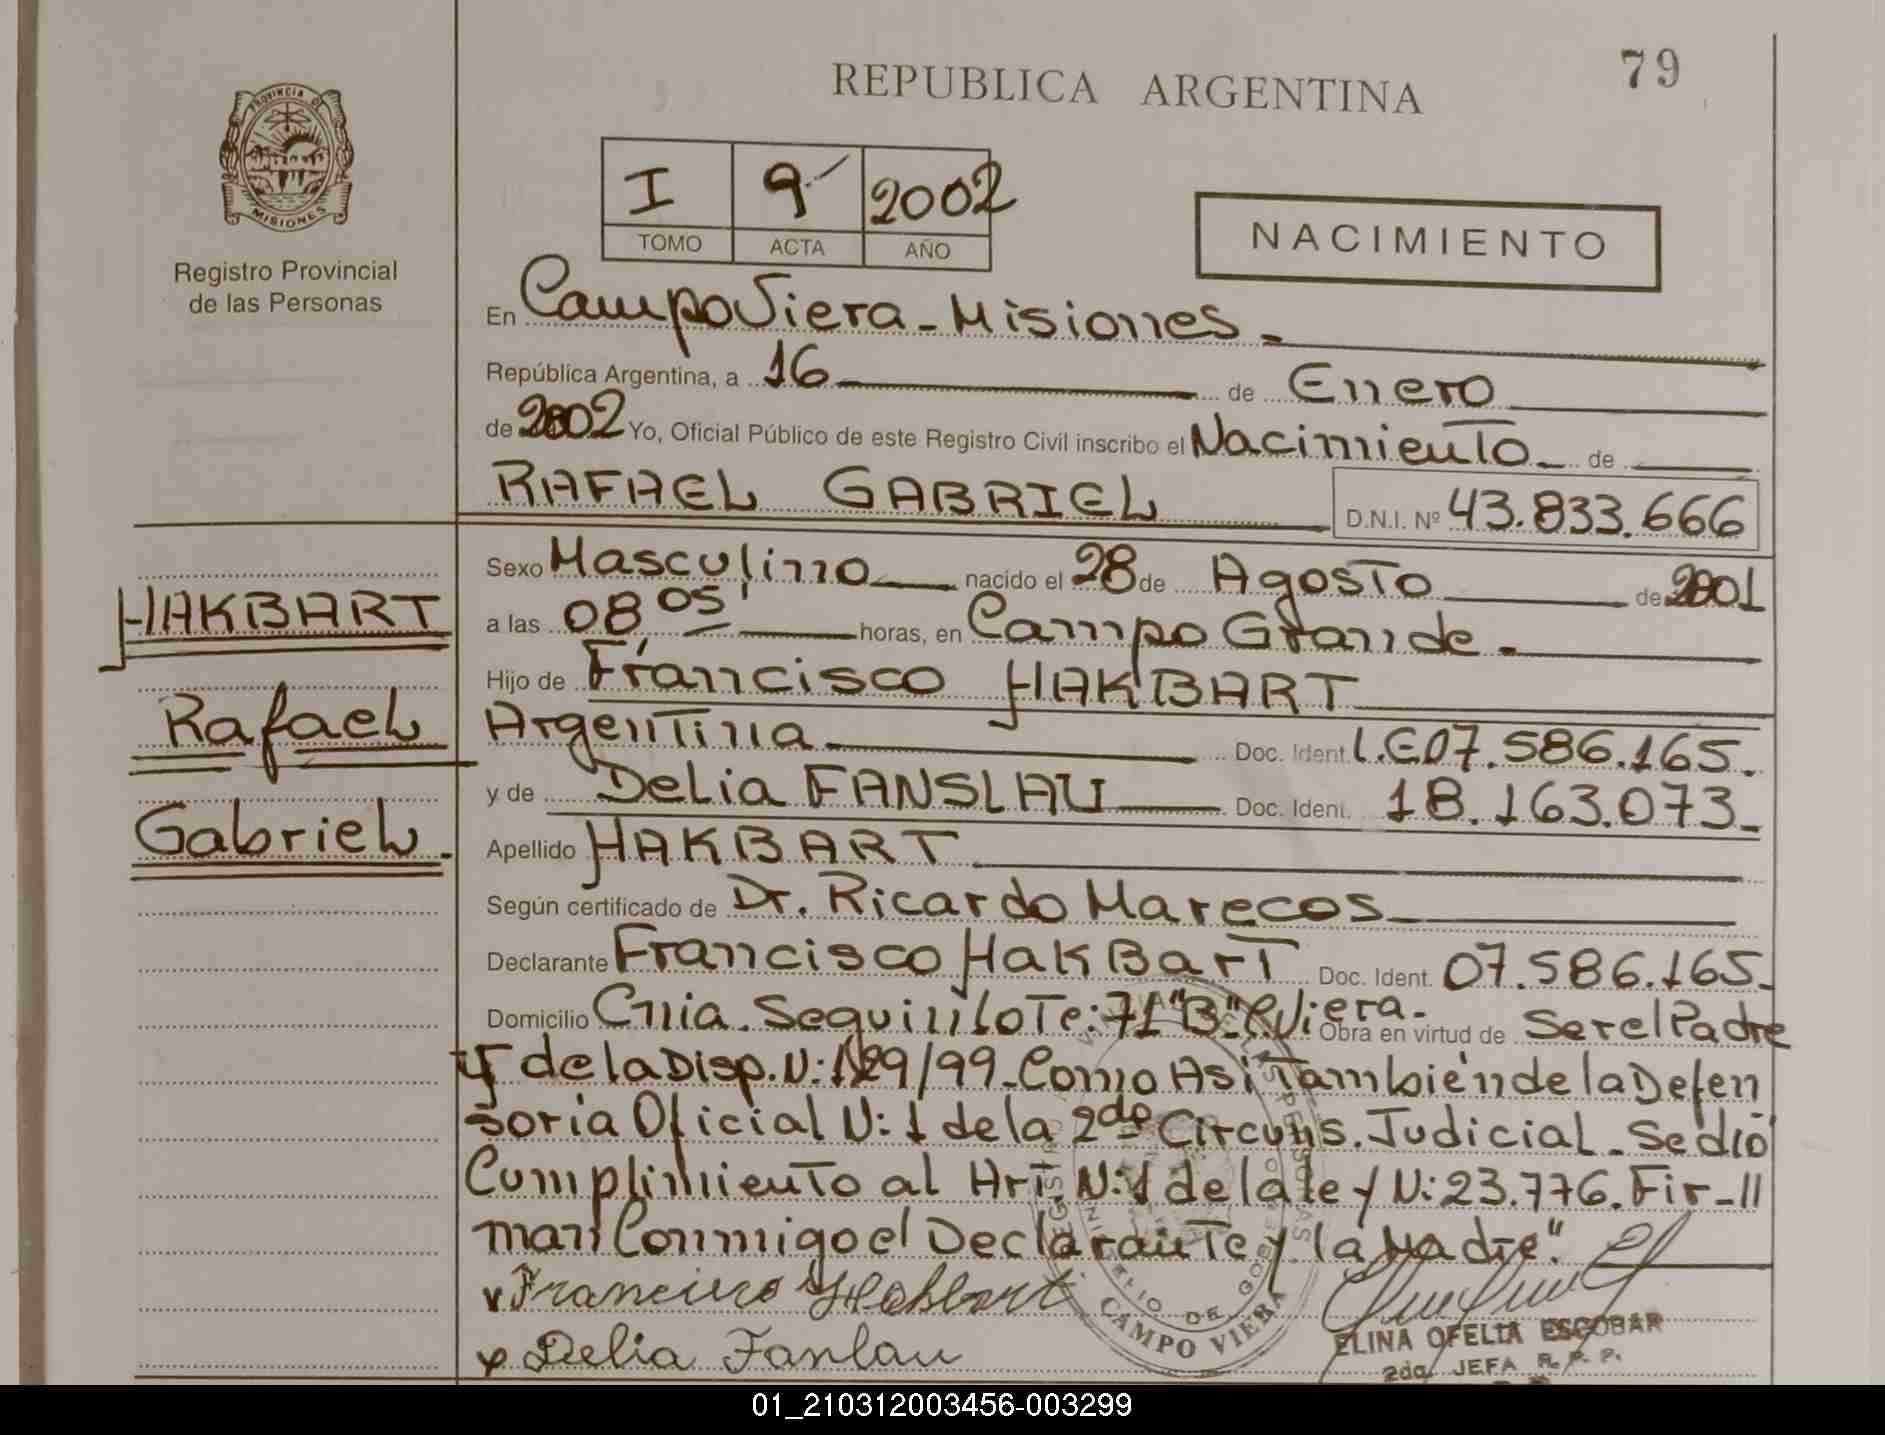 79
REPUBLICA ARGENTINA
PROVINCIA DE
MISIONES
Registro Provincial
de las Personas
I 9 2002
TOMO ACTA AÑO
NACIMIENTO
En Campo Viera - Misiones.
República Argentina, a 16 de Enero
de 2002 Yo, Oficial Público de este Registro Civil inscribo el Nacimiento de
RAFAEL GABRIEL D.N.I. Nº 43.833.666
Sexo Masculino nacido el 28 de Agosto de 2001
a las 08 05 horas, en Campo Grande.
Hijo de Francisco HAKBART
Argentina Doc. Ident. L.E 07.586.165.
y de Delia FANSLAU Doc. Ident. 18.163.073.
Apellido HAKBART
Según certificado de Dr. Ricardo Marecos
Declarante Francisco HakBarT Doc. Ident. 07.586.165
Domicilio Cnia. Seguin LoTe: 71 "B" C. Viera. Obra en virtud de Ser el Padre
y de la Disp. N: 129/99 - Como Asi También de la Defen
soria Oficial N: 1 de la 2da Circuns. Judicial - Se dió
Cumplimiento al Art. N: 1 de la ley N: 23.776. Fir - ll
man Conmigo el Declarante y la Madre".
Francisco Hakbart
Delia Fanlau
CAMPO VIERA
ELINA OFELIA ESCOBAR
2da. JEFA R. P. P.
HAKBART
Rafael
Gabriel.
01_210312003456-003299